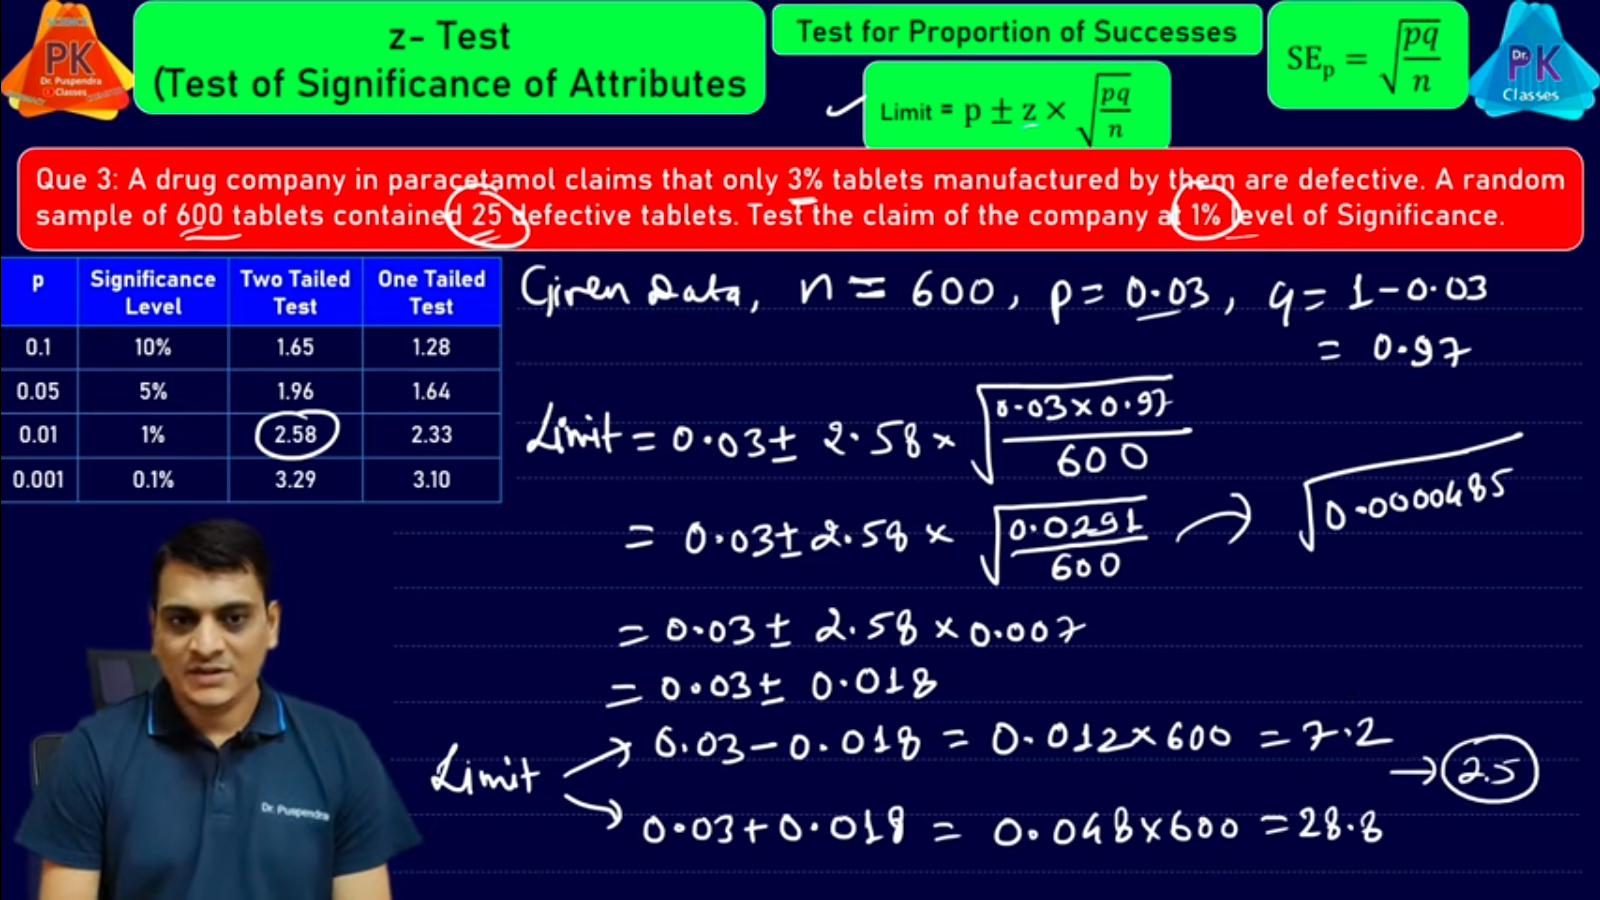 SCIENCE
PK
Dr. Puspendra
Classes
z- Test
(Test of Significance of Attributes
Test for Proportion of Successes
Limit = p ± z × √(pq/n)
SEp = √(pq/n)
Dr.
PK
Classes
Que 3: A drug company in paracetamol claims that only 3% tablets manufactured by them are defective. A random
sample of 600 tablets contained 25 defective tablets. Test the claim of the company at 1% level of Significance.
p Significance Level Two Tailed Test One Tailed Test
0.1 10% 1.65 1.28
0.05 5% 1.96 1.64
0.01 1% 2.58 2.33
0.001 0.1% 3.29 3.10
Given Data, n = 600, p = 0.03, q = 1-0.03
= 0.97
Limit = 0.03 ± 2.58 × √(0.03×0.97/600)
= 0.03 ± 2.58 × √(0.0291/600) → √0.0000485
= 0.03 ± 2.58 × 0.007
= 0.03 ± 0.018
Limit
0.03-0.018 = 0.012×600 = 7.2
→ 25
0.03+0.018 = 0.048×600 = 28.8
Dr. Puspendra